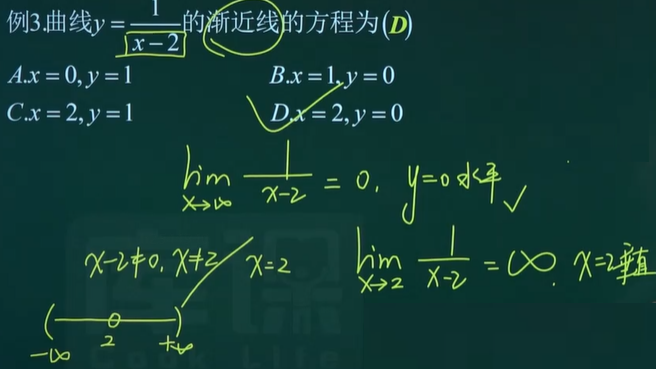 例3.曲线y=1/(x-2)的渐近线的方程为(D)
A.x=0,y=1 B.x=1,y=0
C.x=2,y=1 D.x=2,y=0
lim x→∞ 1/(x-2) = 0. y=0水平
x-2≠0, x≠2 x=2 lim x→2 1/(x-2) = ∞. x=2垂直
-∞ 2 +∞